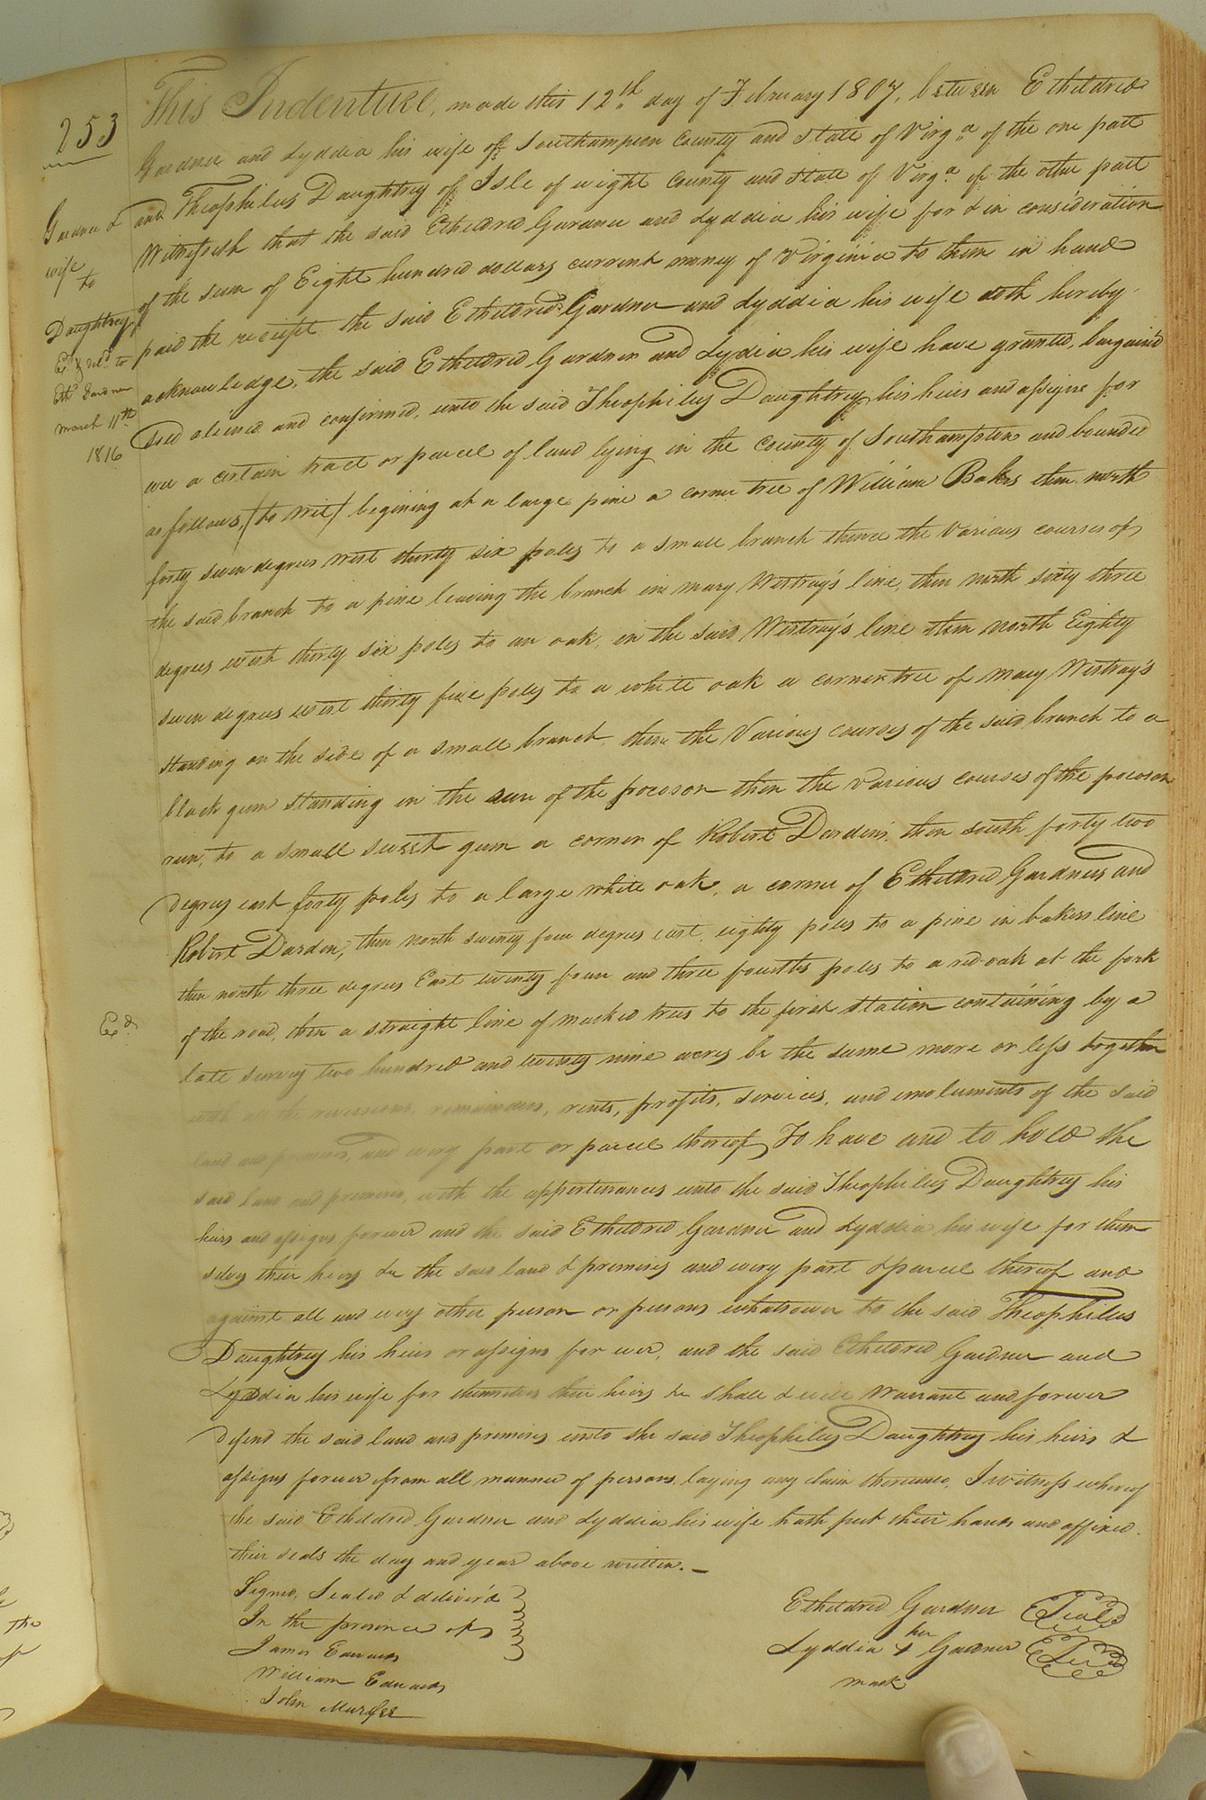 253
Gardner &
wife
to
Daughtrey
Exd & deld to
Eth Gardner
March 11th
1816
Exd
This Indenture, made this 12th day of February 1807, between Etheldred
Gardner and Lyddia his wife of Southampton County and State of Virga of the one part
and Theophilus Daughtrey of Isle of wight County and State of Virga of the other part
Witnesseth that the said Etheldred Gardner and Lyddia his wife for & in consideration
of the sum of Eight hundred dollars current money of Virginia to them in hand
paid the reciept the said Etheldred Gardner and Lyddia his wife doth hereby
acknowledge, the said Etheldred Gardner and Lydia his wife have granted, bargain'd
sold aliened and confirmed, unto the said Theophilus Daughtrey his heirs and assigns for
ever a certain tract or parcel of land lying in the County of Southampton and bounded
as follows, (to wit) begining at a large pine a corner tree of William Bakers then north
forty seven degrees west thirty six poles to a small branch thence the various courses of
the said branch to a pine leaving the branch in mary Westray's line, then north sixty three
degrees west thirty six poles to an oak, in the said Westray's line then north Eighty
seven degrees west thirty five poles to a white oak a corner tree of mary Westray's
standing on the side of a small branch, then the Various courses of the said branch to a
black gum standing in the run of the pocoson then the various courses of the pocoson
run, to a small sweet gum a corner of Robert Dardens, then south forty two
degrees east forty poles to a large white oak, a corner of Etheldred Gardners and
Robert Darden, then north seventy four degrees east, eighty poles to a pine in bakers line
then north three degrees East twenty four and three fourths poles to a red oak at the fork
of the road, then a straight line of marked trees to the first station containing by a
late survey two hundred and twenty nine acres be the same more or less together
with all the reversions, remainders, rents, profits, services, and emoluments of the said
land and premises, and every part or parcel thereof, To have and to hold the
said land and premises, with the appertinances unto the said Theophilus Daughtrey his
heirs and assigns forever and the said Etheldred Gardner and Lyddia his wife for them
selves their heirs &c the said land & premises and every part & parcel thereof and
against all and every other person or persons whatsoever to the said Theophilus
Daughtrey his heirs or assigns for ever, and the said Etheldred Gardner and
Lyddia his wife for themselves their heirs &c shall & will Warrant and forever
defend the said land and premises unto the said Theophilus Daughtrey his heirs &
assigns forever from all manner of persons laying any claim thereunto, I witness whereof
the said Etheldred Gardner and Lyddia his wife hath put their hands and affixed
their seals the day and year above written.
Signed, Sealed & deliver'd
In the presence of
James Edwards
William Edwards
John Murfee
Etheldred Gardner Seal
her
Lyddia + Gardner Seal
mark
the